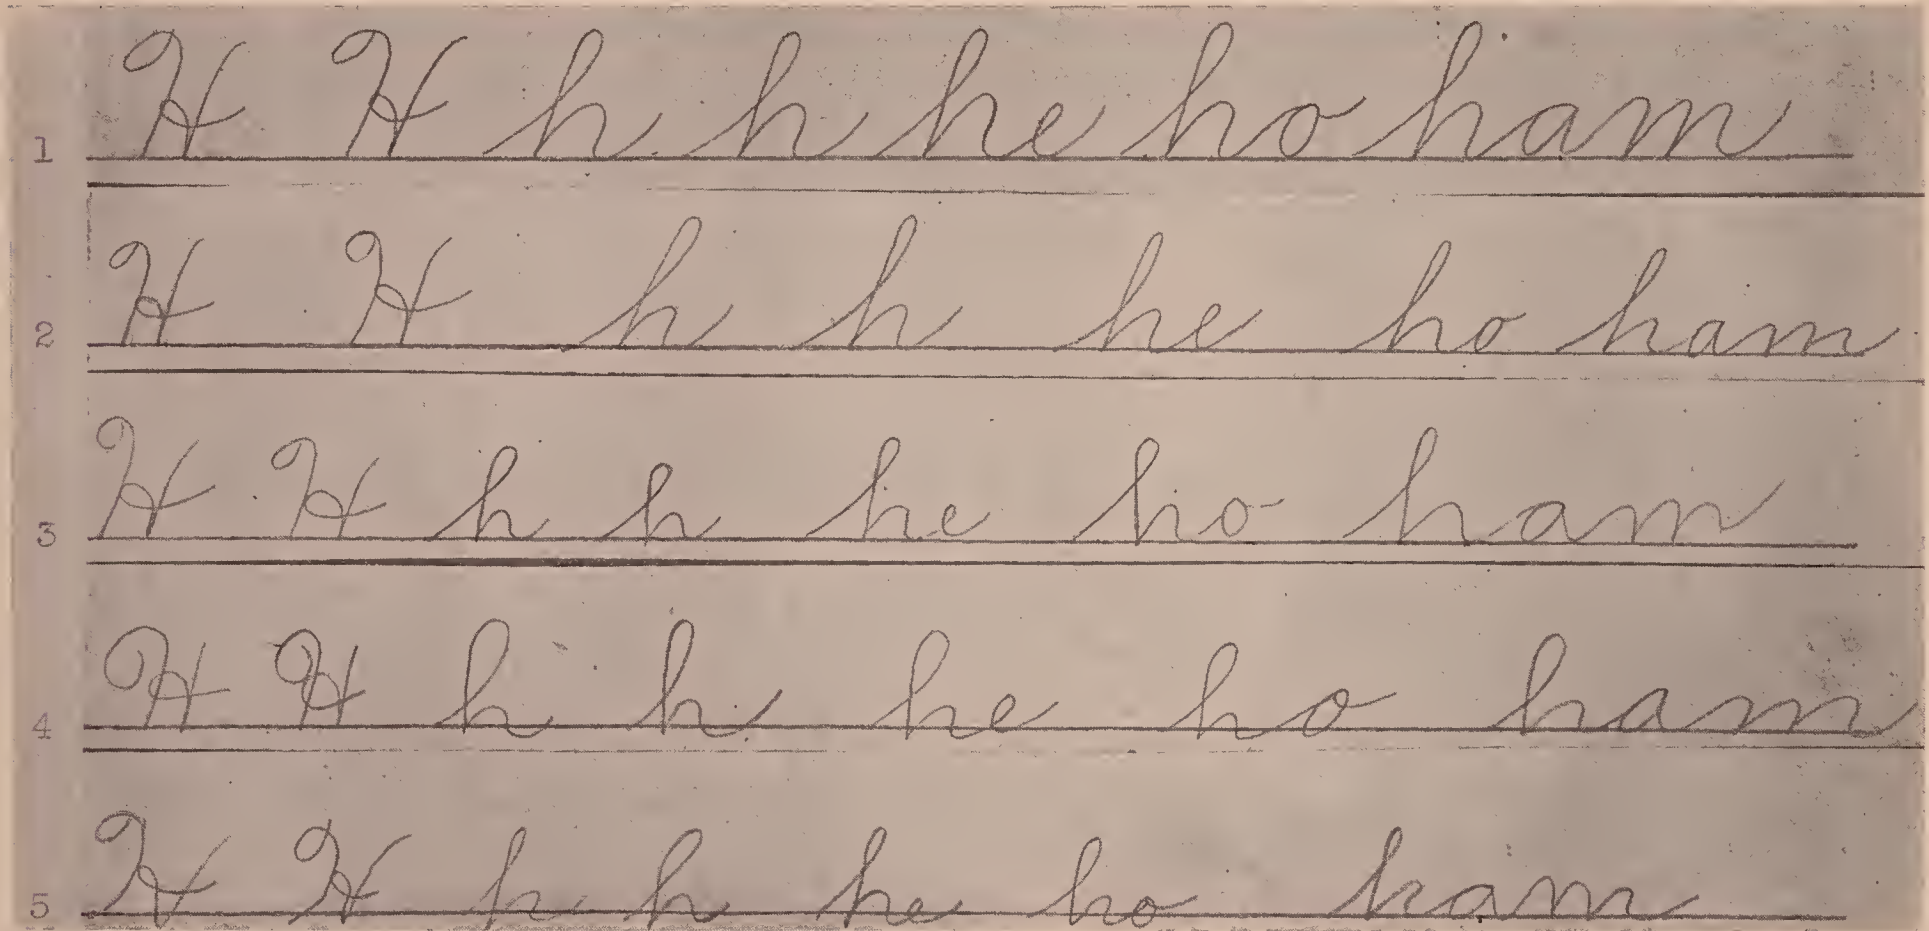 1 H H h h he ho ham
2 H H h h he ho ham
3 H H h h he ho ham
4 H H h h he ho ham
5 H H h h he ho ham